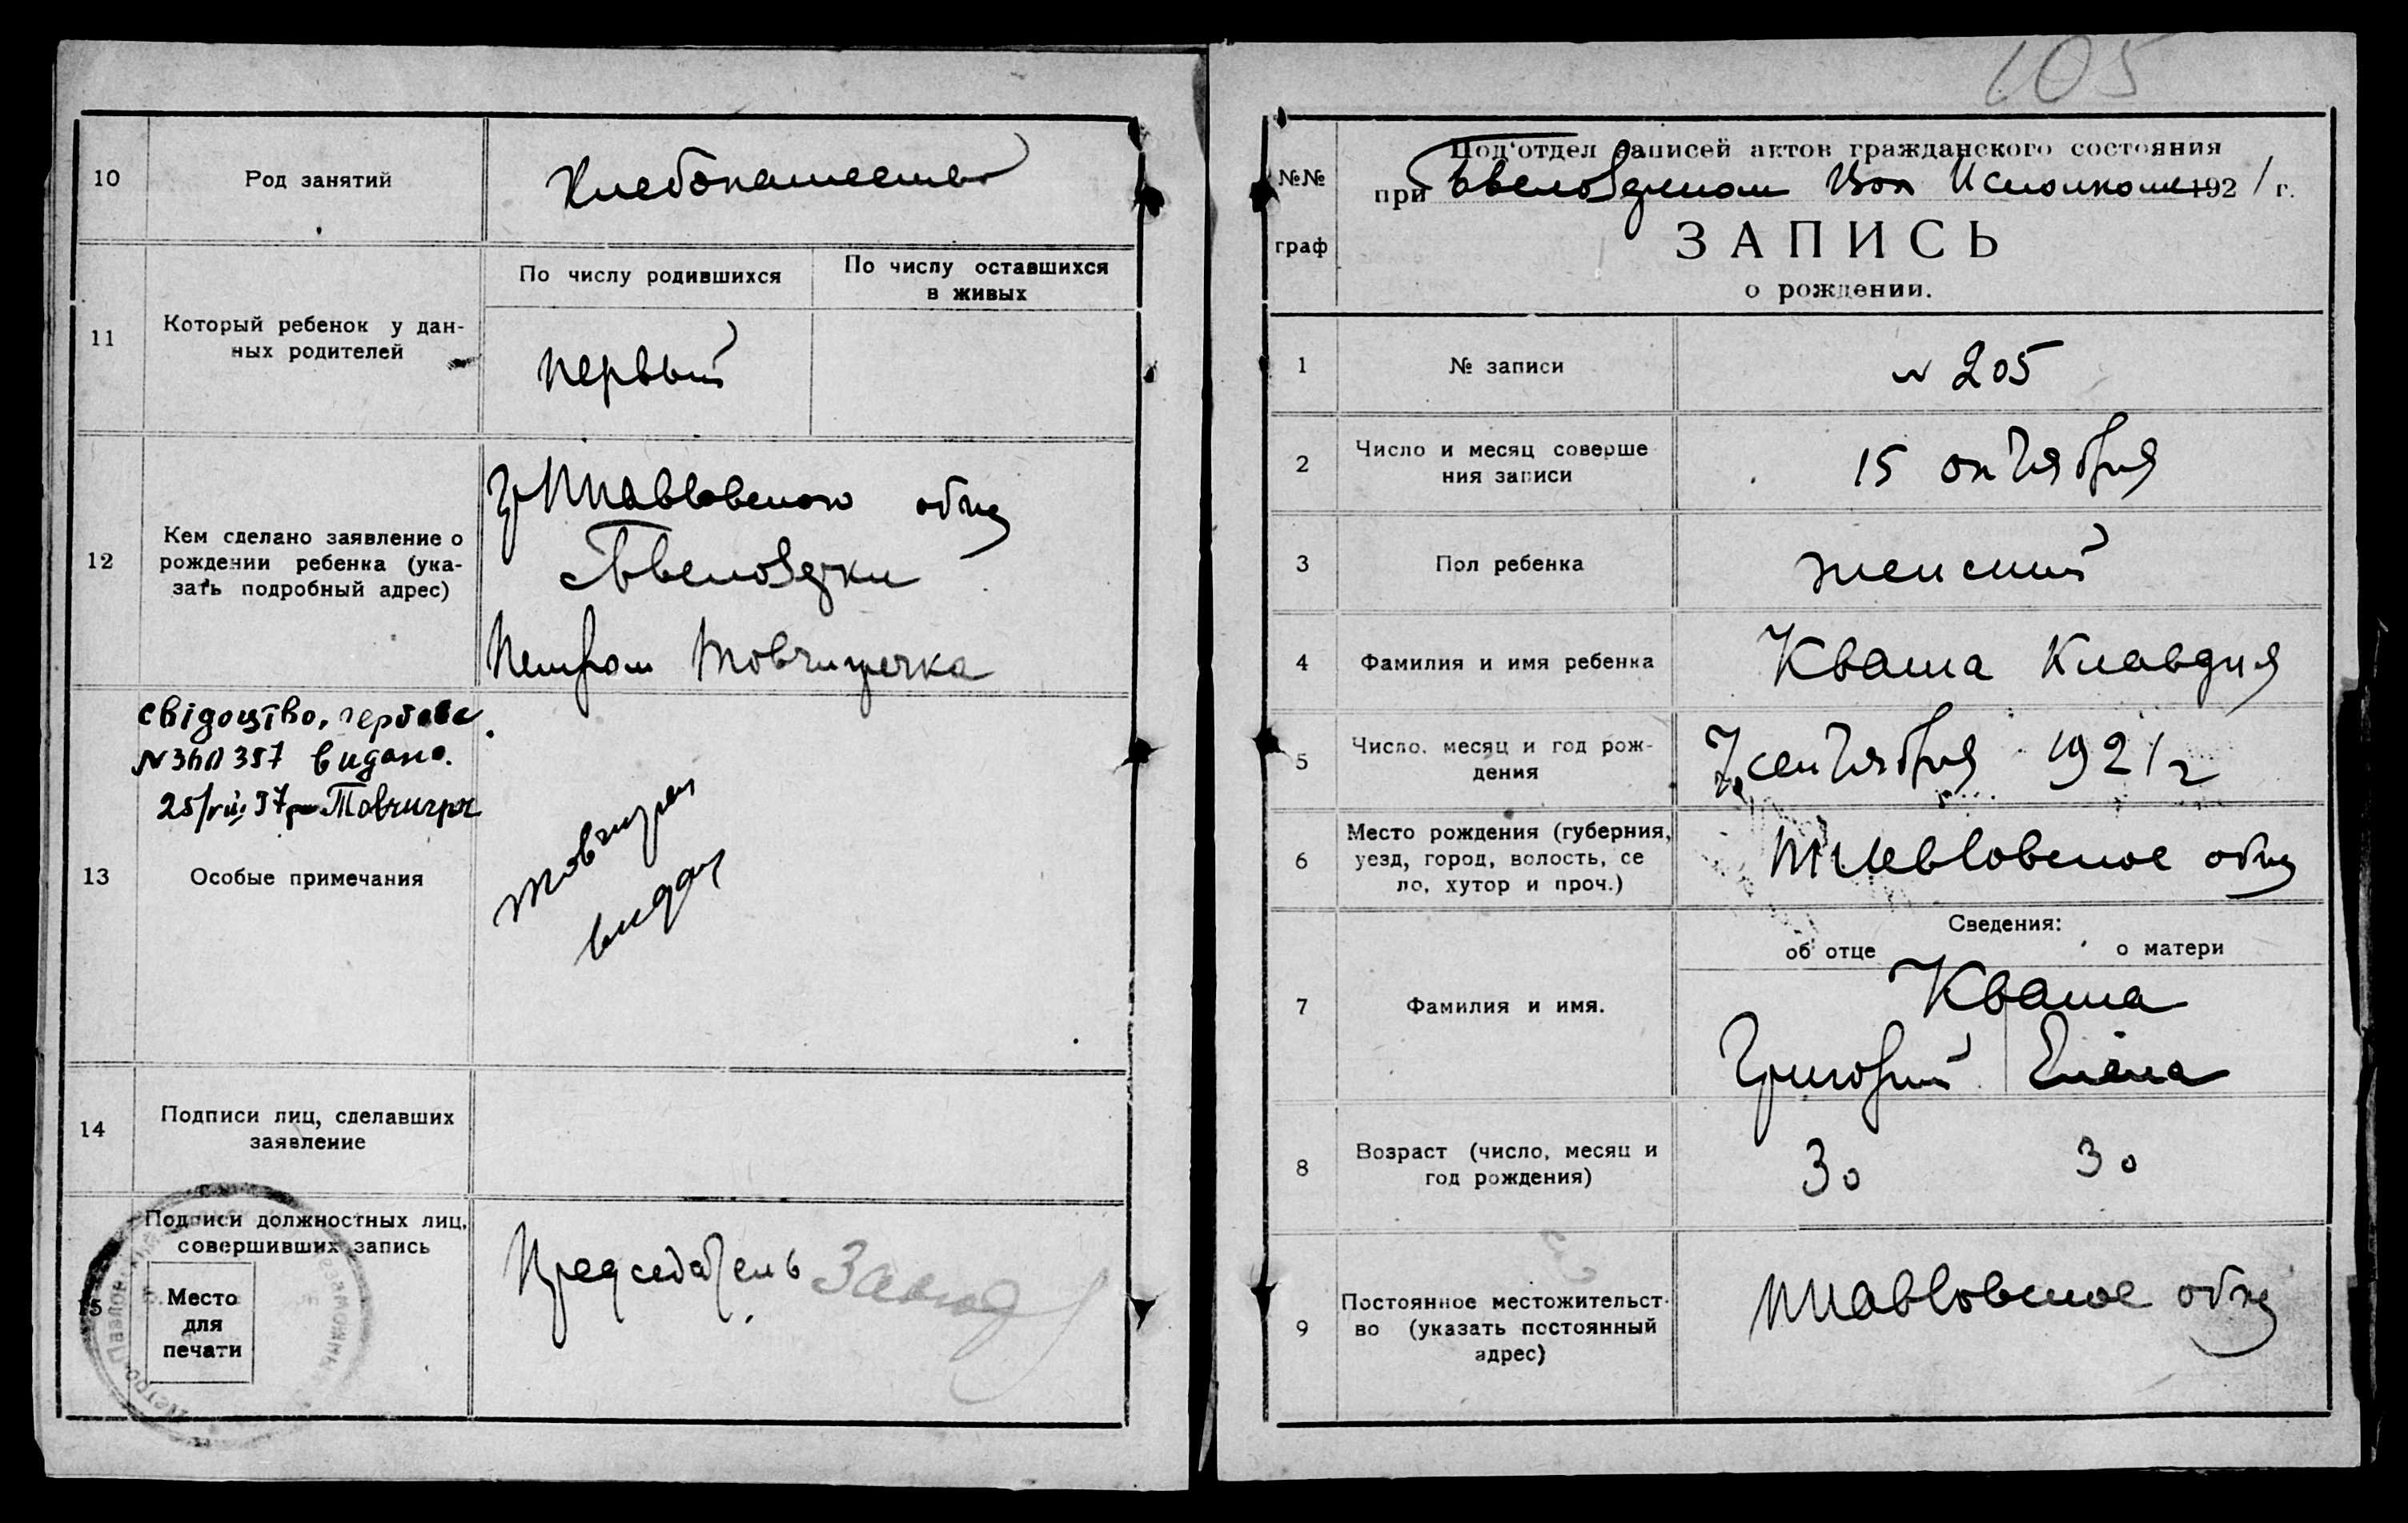 10
Род занятий
Хлебопашество
11
Который ребенок у дан-
ных родителей
По числу родившихся
По числу оставшихся
в живых
первый
12
Кем сделано заявление о
рождении ребенка (ука-
зать подробный адрес)
общ
Петром
свідоцтво, гербове
видано.
13
Особые примечания
14
Подписи лиц, сделавших
заявление
15
Подписи должностных лиц,
совершивших запись
Место
для
печати
Председатель
105
№№
граф
Под'отдел записей актов гражданского состояния
при Вол Исполкоме 1921 г.
ЗАПИСЬ
о рождении.
1
№ записи
№ 205
2
Число и месяц соверше
ния записи
15 октября
3
Пол ребенка
женский
4
Фамилия и имя ребенка
Кваша Клавдия
5
Число, месяц и год рож-
дения
7 сентября 1921 г
6
Место рождения (губерния,
уезд, город, волость, се
ло, хутор и проч.)
общ
Сведения:
об отце
о матери
7
Фамилия и имя.
Кваша
Григорий Елена
8
Возраст (число, месяц и
год рождения)
30 30
9
Постоянное местожительст-
во (указать постоянный
адрес)
общ